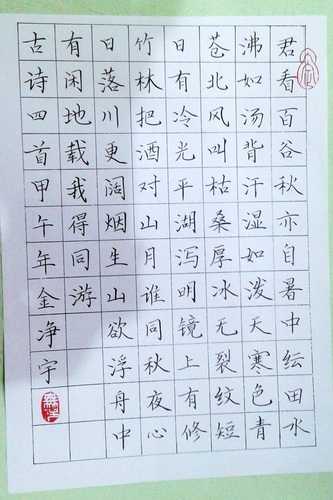 君看百谷秋亦自暑中纭田水
沸如汤背汗湿如泼天寒色青
苍北风叫枯桑厚冰无裂纹短
日有冷光平湖泻明镜上有修
竹林把酒对山月谁同秋夜心
日落川更阔烟生山欲浮舟中
有闲地载我得同游
古诗四首甲午年金净宇